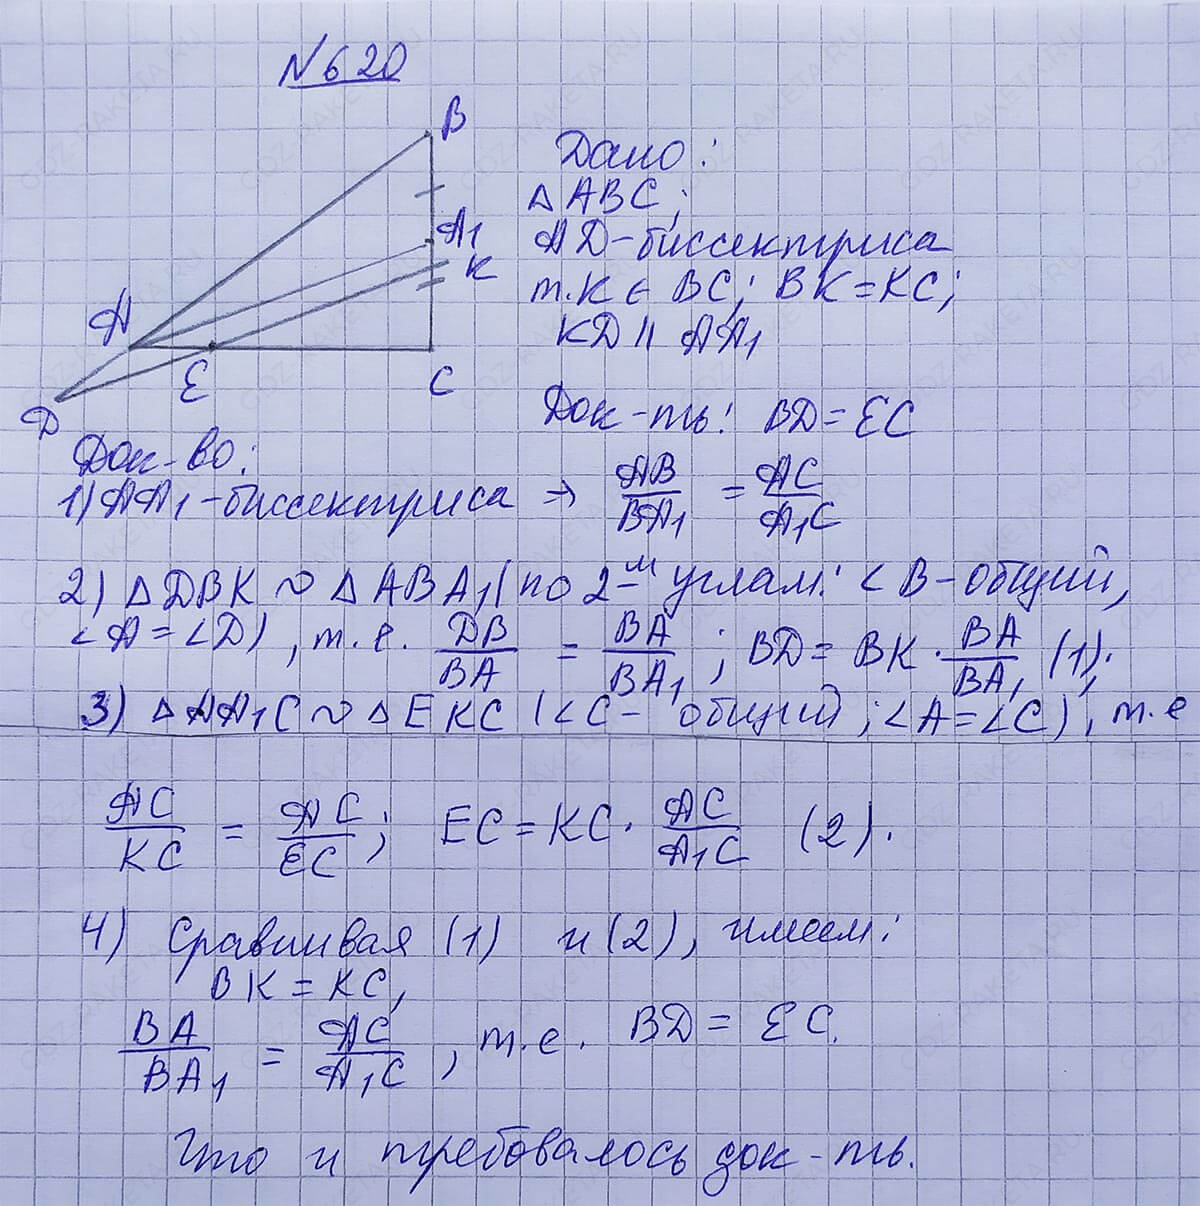 №620
B
A₁
K
A
E
C
D
Дано:
△ABC;
AD-биссектриса
т.K ∈ BC; BK=KC;
KD || AA₁
Док-ть: BD=EC
Док-во:
1) AA₁-биссектриса ⇒ AB/BA₁ = AC/A₁C
2) △DBK ∼ △ABA₁ (по 2-м углам: ∠B-общий,
∠A=∠D), т.е. DB/BA = BA/BA₁; BD=BK·BA/BA₁ (1);
3) △AA₁C ∼ △EKC (∠C- общий; ∠A=∠C), т.е
AC/KC = AC/EC; EC=KC·AC/A₁C (2).
4) Сравнивая (1) и (2), имеем:
BK=KC,
BA/BA₁ = AC/A₁C, т.е. BD=EC.
Что и требовалось док-ть.
GDZ-RAKETA.RU